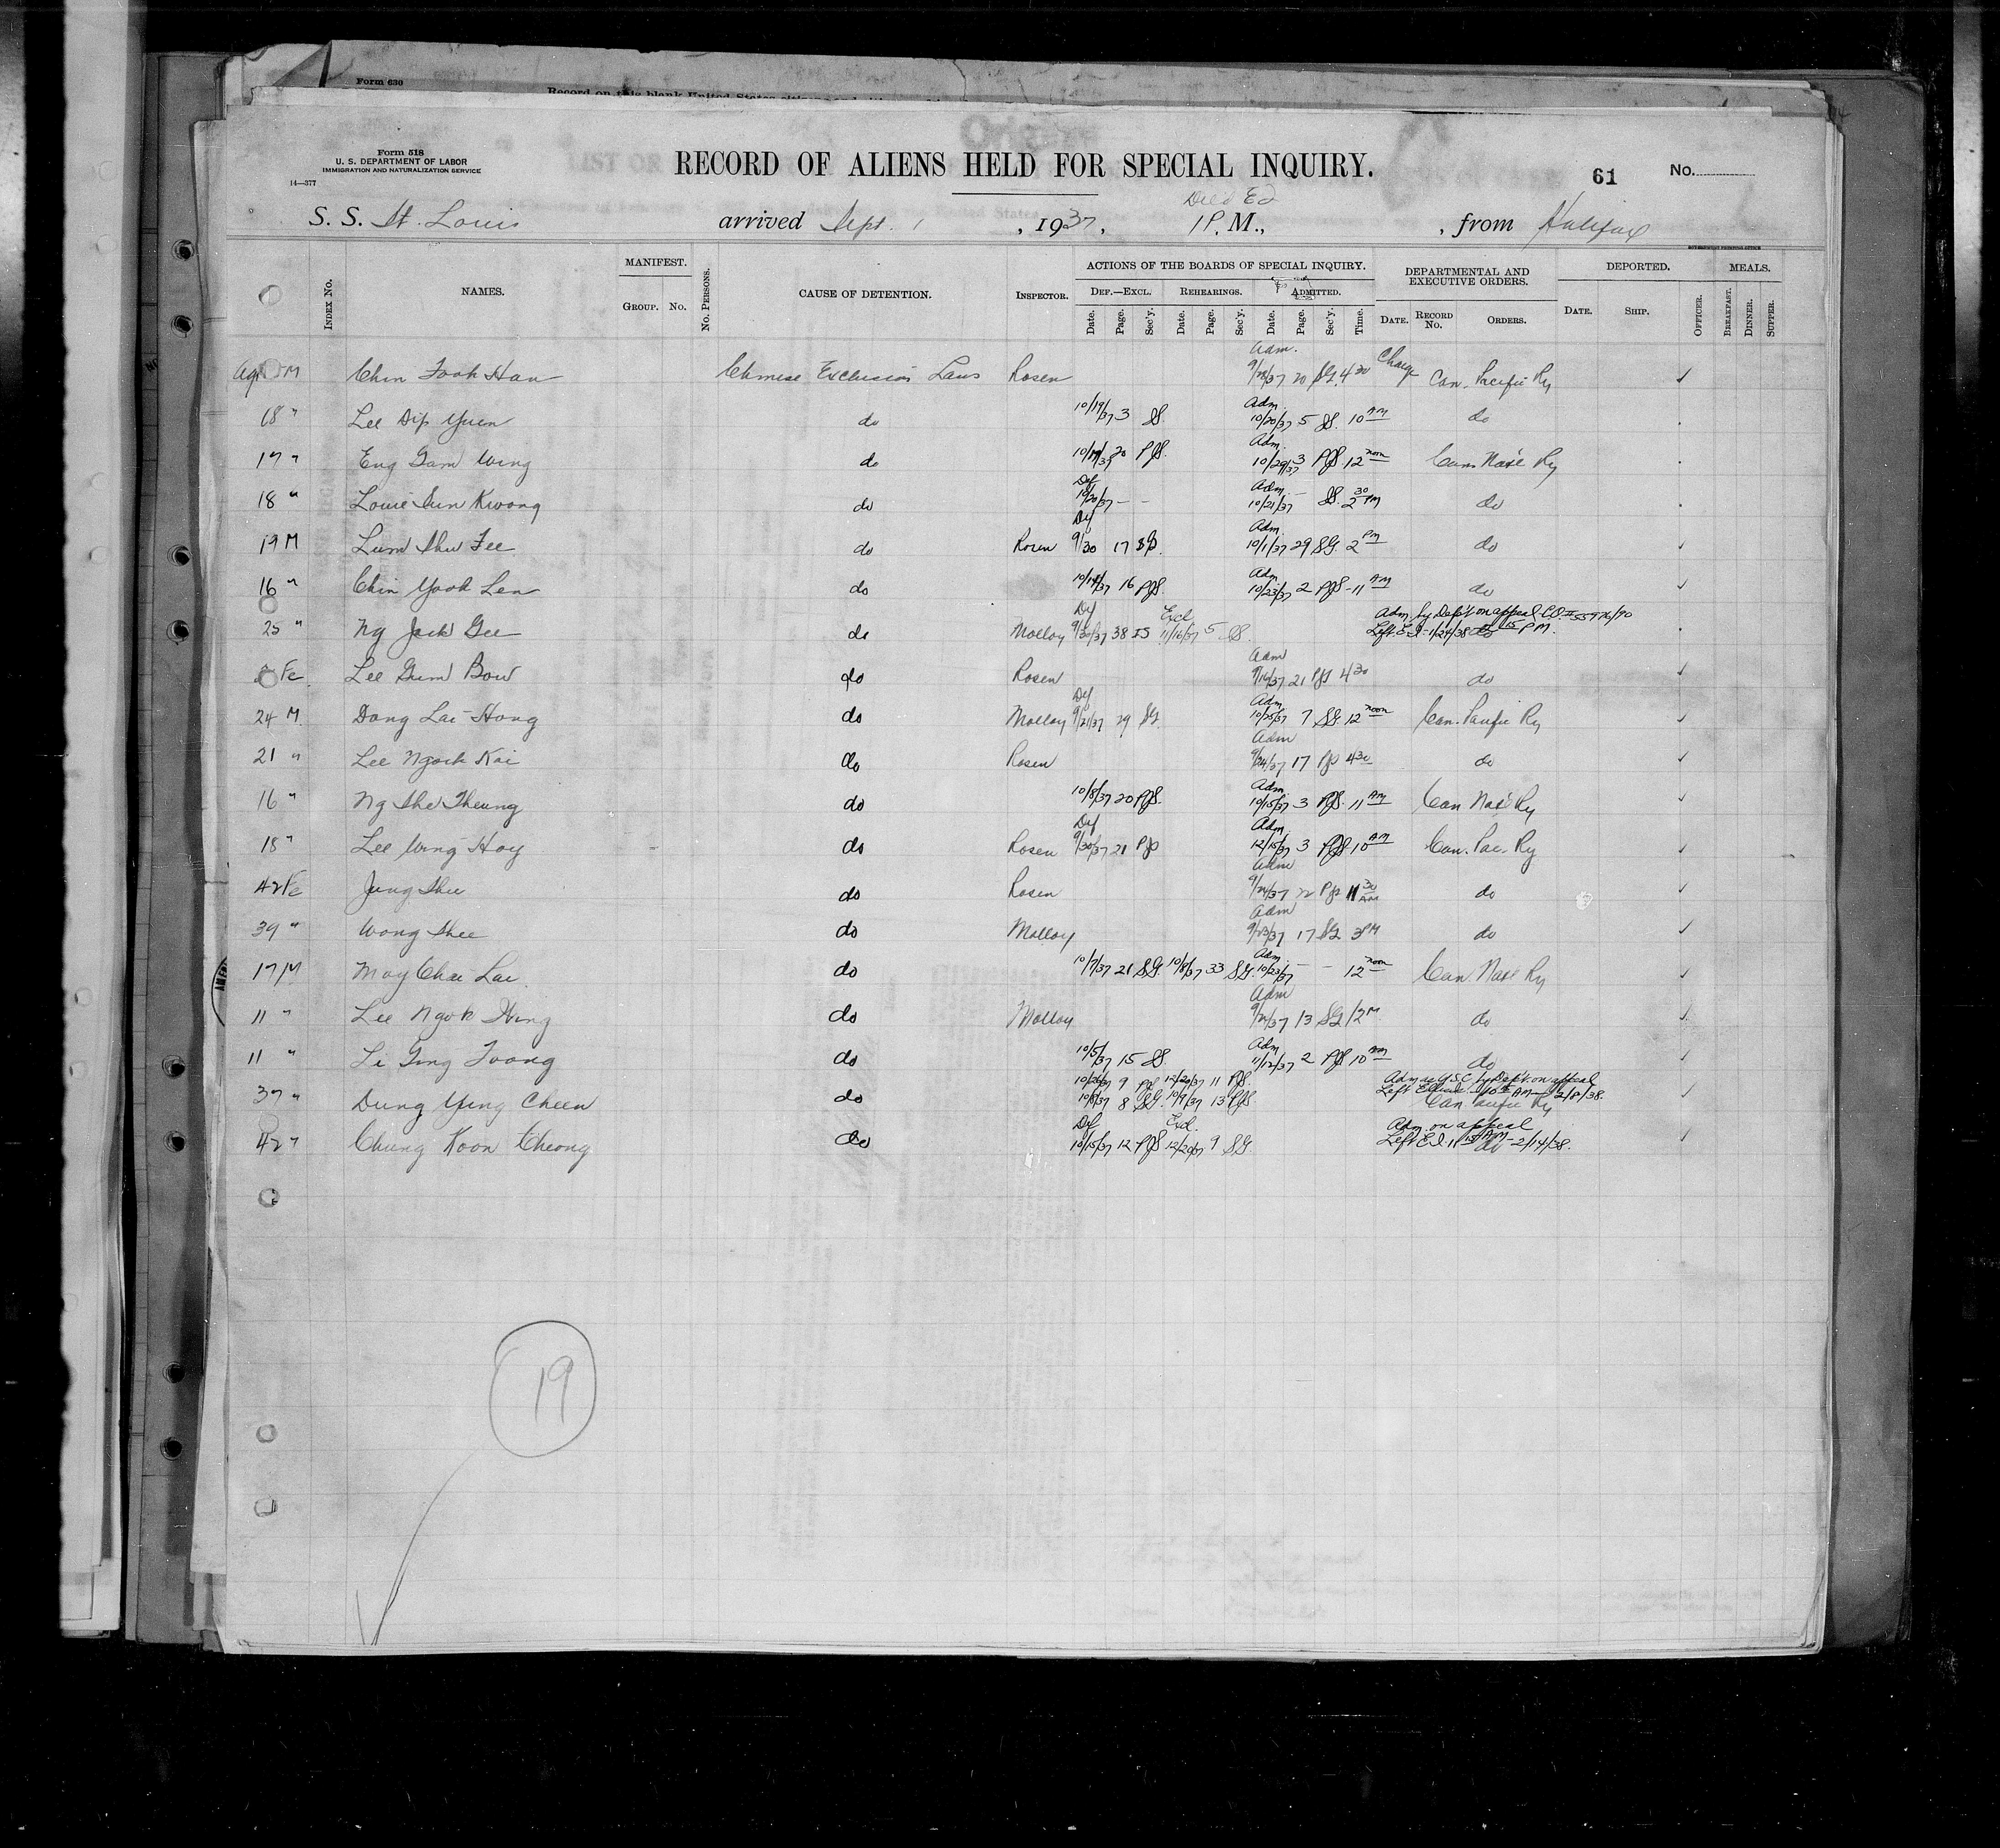 Form 630
Record on this blank United States citizens
Form 518
U. S. DEPARTMENT OF LABOR
IMMIGRATION AND NATURALIZATION SERVICE
14—377
RECORD OF ALIENS HELD FOR SPECIAL INQUIRY.
61 No.
S. S. St. Louis arrived Sept. 1, 1937, 1 P. M., from Halifax
INDEX No. NAMES. MANIFEST. GROUP. No. No. PERSONS. CAUSE OF DETENTION. INSPECTOR. ACTIONS OF THE BOARDS OF SPECIAL INQUIRY. DEPARTMENTAL AND EXECUTIVE ORDERS. DEPORTED. OFFICER. MEALS.
DEF.—EXCL. REHEARINGS. ADMITTED.
Date. Page. Sec'y. Date. Page. Sec'y. Date. Page. Sec'y. Time. DATE. RECORD No. ORDERS. DATE. SHIP. BREAKFAST. DINNER. SUPPER.
M Chin Fook Han Chinese Exclusion Laws Rosen Adm. 9/28/37 20 SG 4 30 Charge Can. Pacific Ry
18 " Lee Dip Yuen do 10/19/37 3 SS. Adm. 10/20/37 5 SS. 10 AM do
17 " Eng Gam Wing do 20 PJS. Adm. 10/29/37 3 PJS 12 noon Can. Nat'l Ry
18 " Louie Sun Kwong do Def 10/20/37 - - Adm. 10/21/37 - SS. 2 30 PM do
19 M Lum Shu Fee do Rosen Def 9/30 17 Adm. 10/1/37 29 SG. 2 PM do
16 " Chin Yook Len do 16 PJS. Adm. 10/23/37 2 PJS - 11 AM do
25 " Ng Jack Gee do Molloy Def 9/30/37 38 IS Excl 11/16/37 5 SS. Adm. by Dep't on appeal
Left E.I. 1/24/38 PM.
Fe. Lee Gum Bow do Rosen Adm 9/16/37 21 PJS 4 30 do
24 M. Dong Lai Hong do Molloy Def 9/21/37 29 SG. Adm. 10/25/37 7 SG 12 noon Can. Pacific Ry
21 " Lee Ngock Kai do Rosen Adm 9/24/37 17 PJS 4 30 do
16 " Ng She Theung do 10/8/37 20 PJS. Adm. 10/15/37 3 PJS. 11 AM Can Nat'l Ry
18 " Lee Wing Hoy do Rosen Def 9/30/37 21 PJS Adm. 12/15/37 3 PJS 10 AM Can. Pac. Ry
42 Fe Jung Shee do Rosen Adm 9/24/37 22 PJS 11 30 AM do
39 " Wong Shee do Molloy Adm 9/23/37 17 SG 3 PM do
17 M Moy Chai Lai do 10/7/37 21 SG. 10/8/37 33 SG. Adm. 10/23/37 - - 12 noon Can. Nat'l Ry
11 " Lee Ngok Hing do Molloy Adm 13 SG 12 M do
11 " Le Ting Foong do 10/5/37 15 SS. Adm. 11/12/37 2 PJS 10 AM do
37 " Dung Yung Cheen do 10/26/37 9 PJS 12/20/37 11 PJS. Adm as USC by Dep't. on appeal
8 SG. 13 PJS Left 2/8/38. Can. Pacific Ry
42 " Chung Koon Cheong do Def 10/15/37 12 PJS Excl. 12/20/37 9 SG Adm. on appeal
Left E.I. 11 15 AM - 2/14/38. do
19